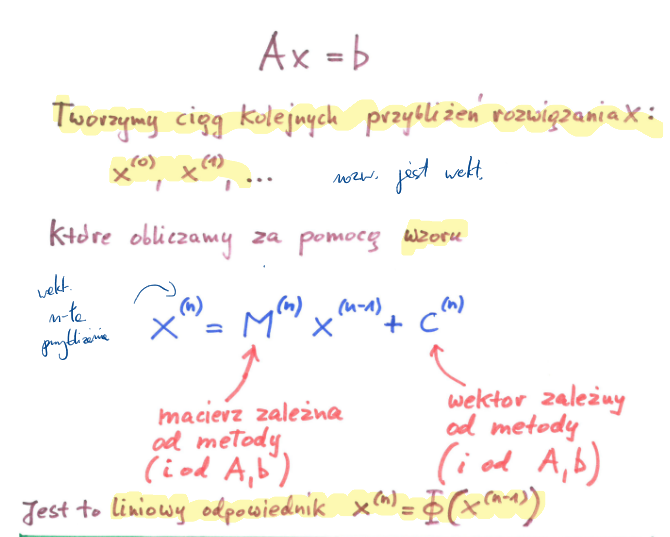 Ax = b
Tworzymy ciąg kolejnych przybliżeń rozwiązania x:
x^(0), x^(1), ...
rozw. jest wekt.
które obliczamy za pomocą wzoru
wekt.
n-te
przybliżenie
x^(n) = M^(n) x^(n-1) + c^(n)
macierz zależna
od metody
(i od A, b)
wektor zależny
od metody
(i od A, b)
Jest to liniowy odpowiednik x^(n) = Φ(x^(n-1))